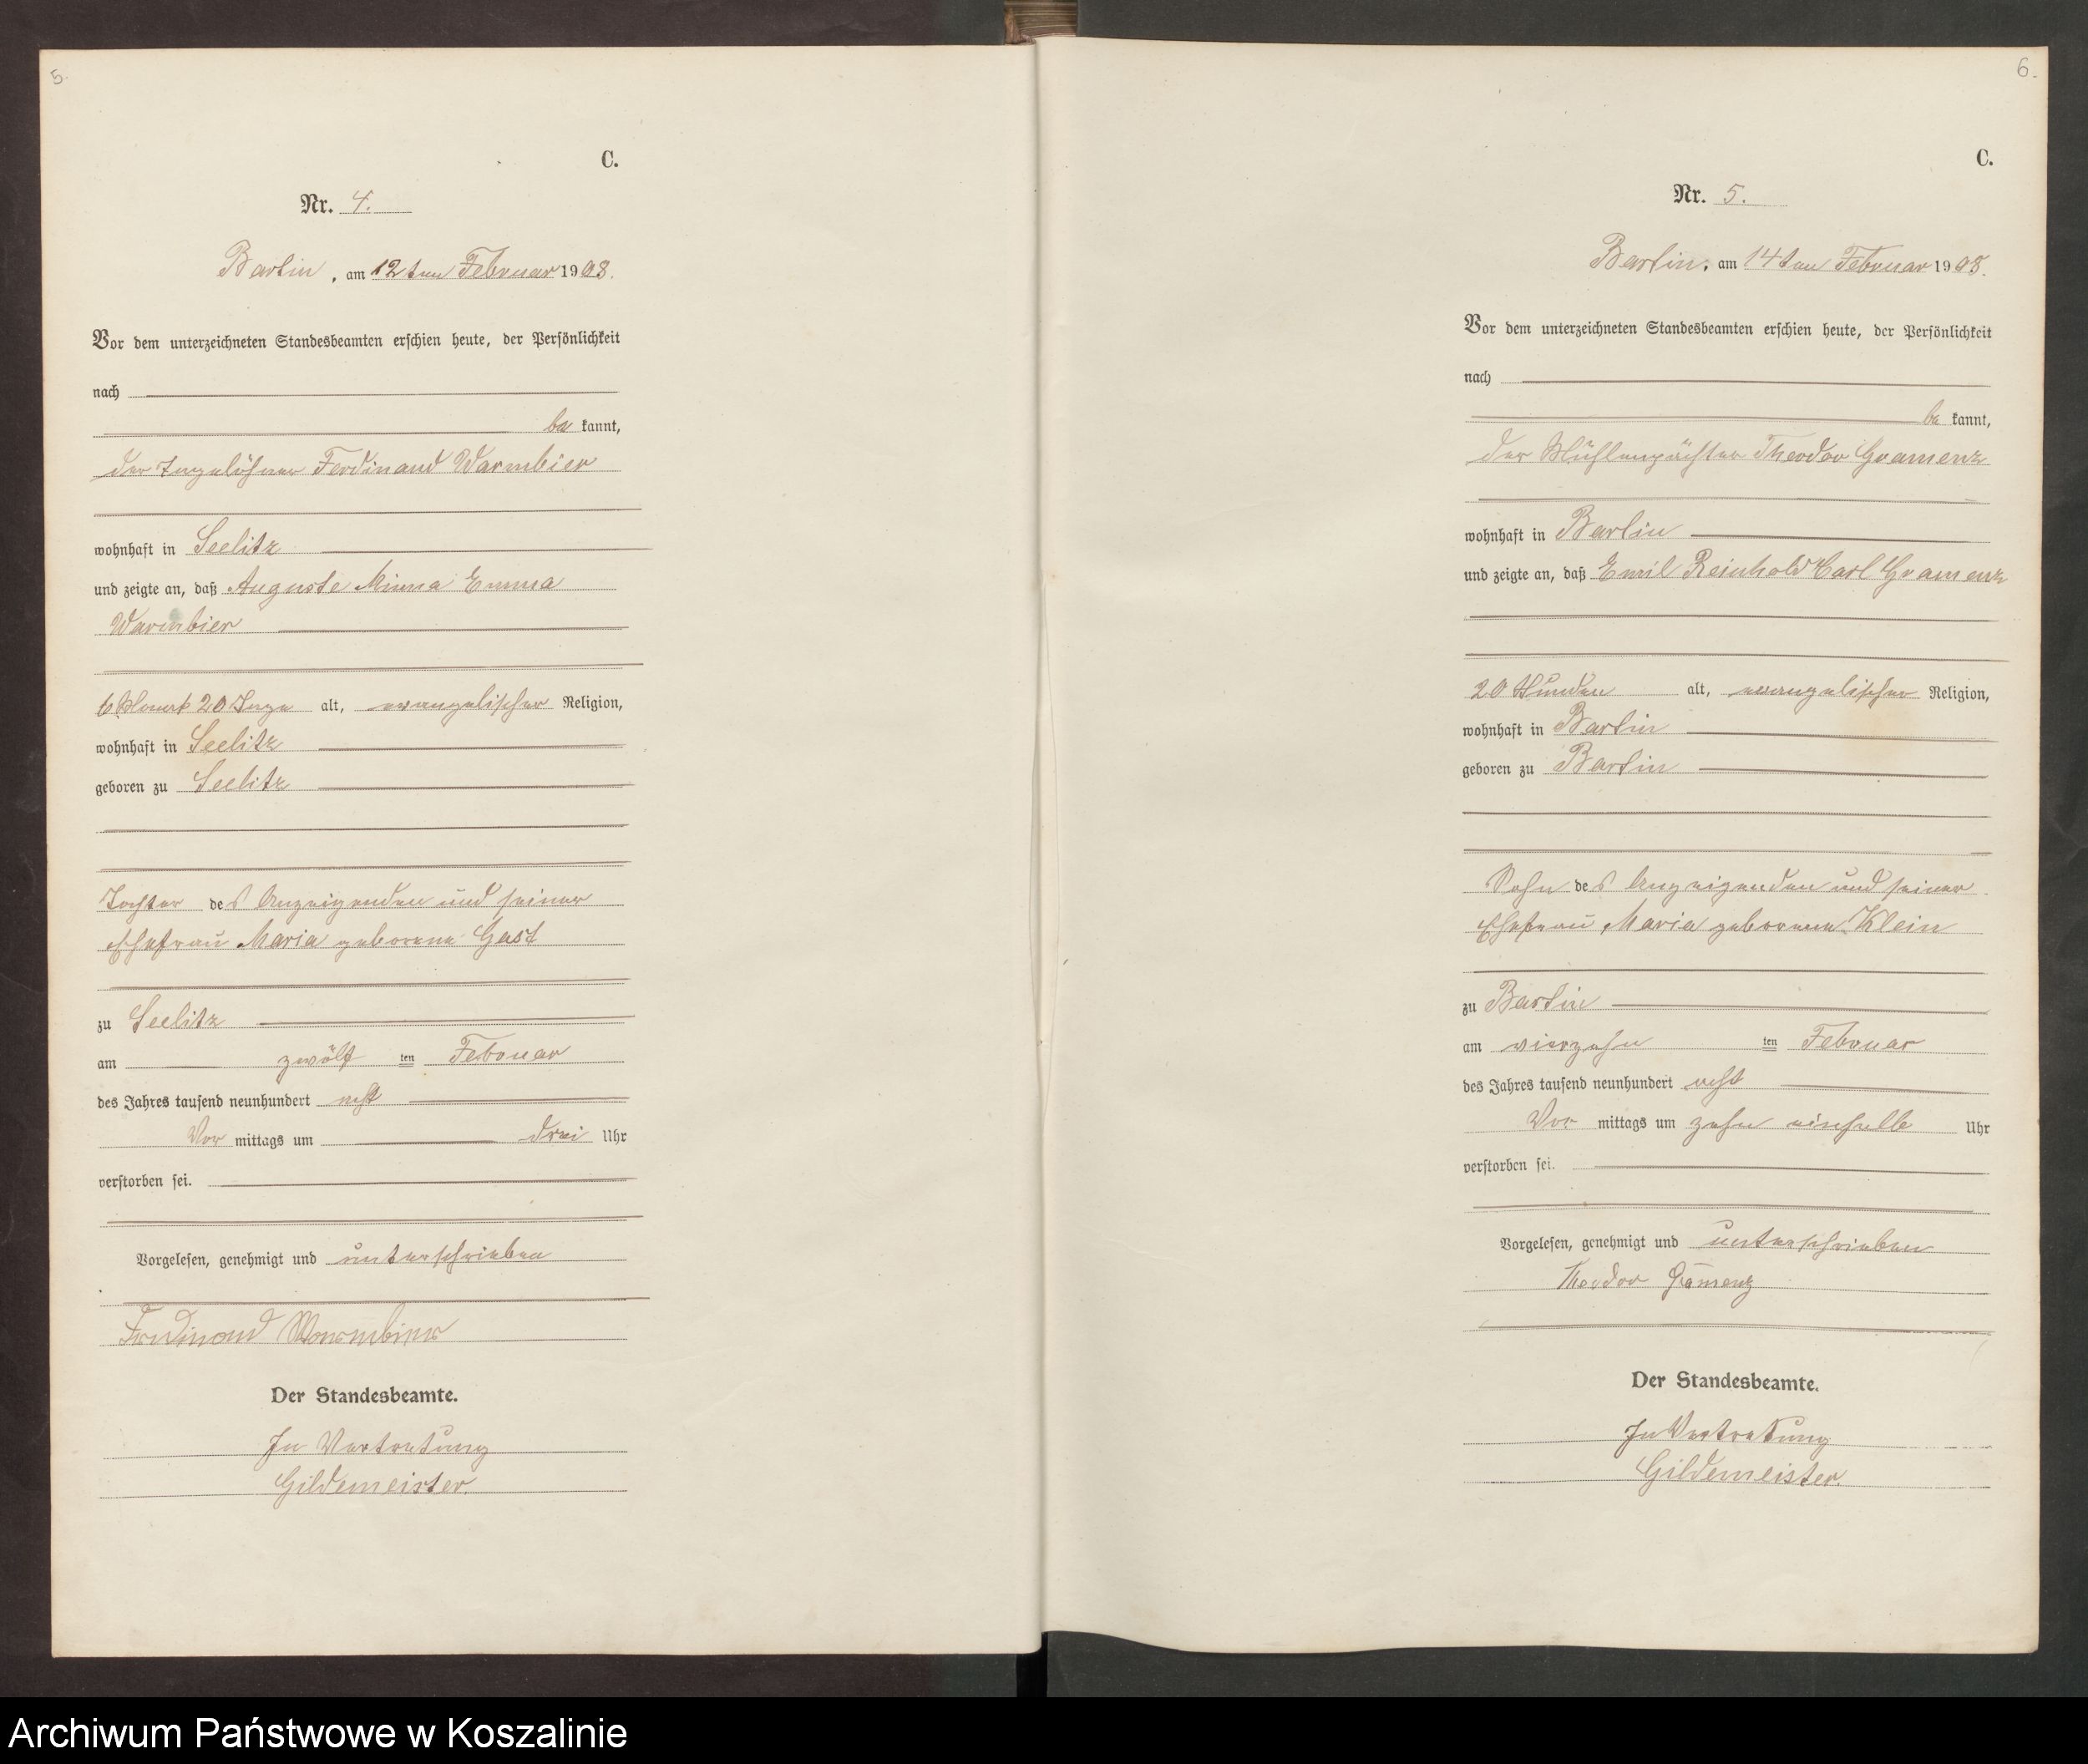 5.
C.
Nr. 4.
Bartin, am 12ten Februar 1908.
Vor dem unterzeichneten Standesbeamten erschien heute, der Persönlichkeit
nach
be kannt,
der Tagelöhner Ferdinand Warmbier
wohnhaft in Seelitz
und zeigte an, daß Auguste Minna Emma
Warmbier
6 Monat 20 Tage alt, evangelischer Religion,
wohnhaft in Seelitz
geboren zu Seelitz
Tochter des Anzeigenden und seiner
Ehefrau Maria geborene Gast
zu Seelitz
am zwölf ten Februar
des Jahres tausend neunhundert acht
Vor mittags um drei Uhr
verstorben sei.
Vorgelesen, genehmigt und unterschrieben
Ferdinand Warmbier
Der Standesbeamte.
In Vertretung
Gildemeister.
6.
C.
Nr. 5.
Bartin, am 14ten Februar 1908.
Vor dem unterzeichneten Standesbeamten erschien heute, der Persönlichkeit
nach
be kannt,
der Mühlenpächter Theodor Gramenz
wohnhaft in Bartin
und zeigte an, daß Emil Reinhold Carl Gramenz
20 Stunden alt, evangelischer Religion,
wohnhaft in Bartin
geboren zu Bartin
Sohn des Anzeigenden und seiner
Ehefrau Maria geborene Klein
zu Bartin
am vierzehn ten Februar
des Jahres tausend neunhundert acht
Vor mittags um zehn einhalb Uhr
verstorben sei.
Vorgelesen, genehmigt und unterschrieben
Theodor Gramenz
Der Standesbeamte.
In Vertretung
Gildemeister.
Archiwum Państwowe w Koszalinie